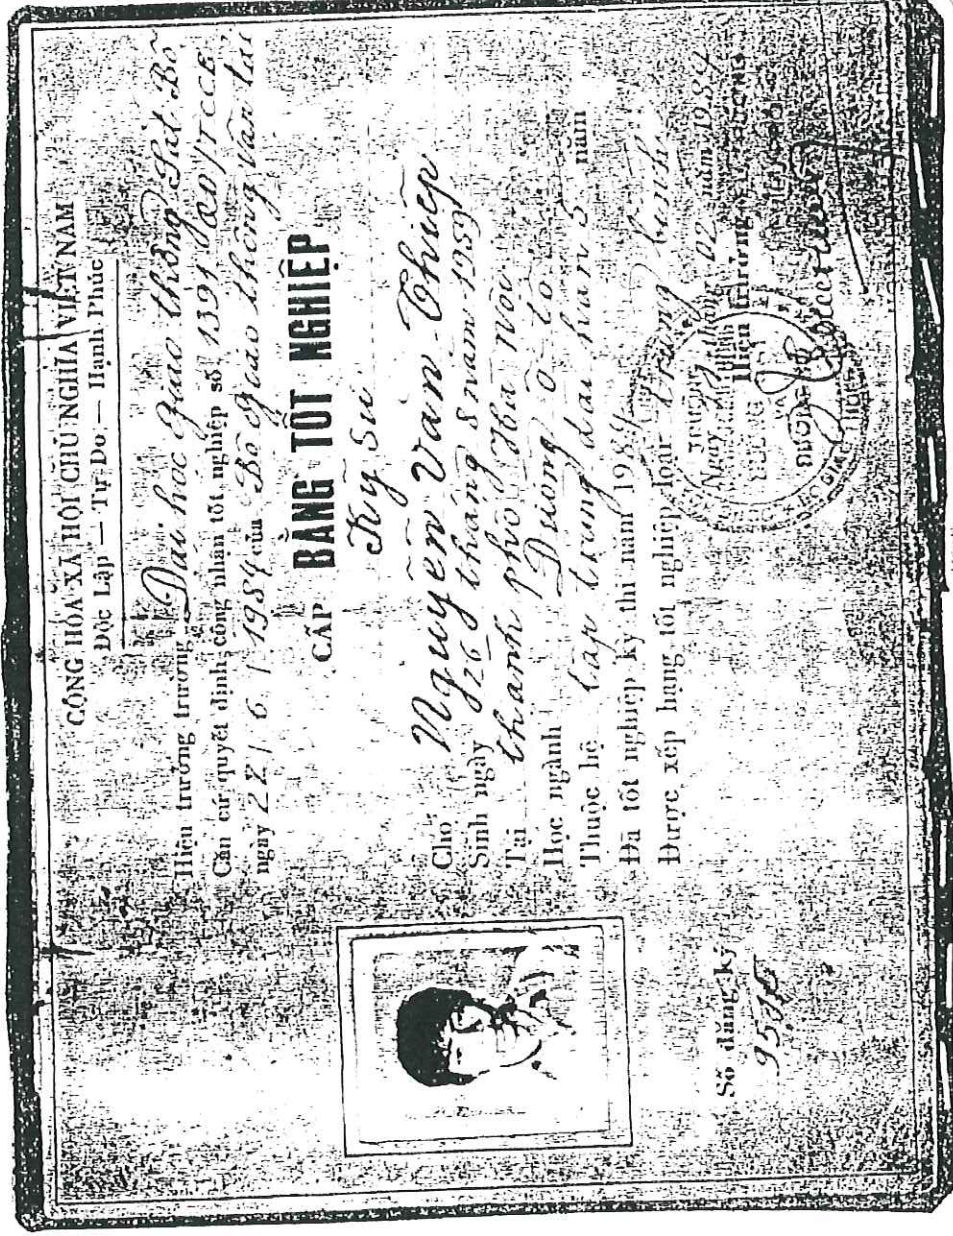 CỘNG HÒA XÃ HỘI CHỦ NGHĨA VIỆT NAM
Độc Lập — Tự Do — Hạnh Phúc
Hiệu trưởng trường Đại học Giao thông Sắt Bộ
Căn cứ quyết định công nhận tốt nghiệp số 1391
ngày 22 / 6 / 1984 của Bộ Giao thông Vận tải
CẤP BẰNG TỐT NGHIỆP
Kỹ sư
Cho Nguyễn Văn Thiệp
Sinh ngày 26 tháng 8 năm 1959
Tại thành phố Hà Nội
Học ngành Đường Ô tô
Thuộc hệ tập trung dài hạn 5 năm
Đã tốt nghiệp kỳ thi năm 1984
Được xếp hạng tốt nghiệp loại trung bình
năm 1984
Hiệu trưởng
Số đăng ký